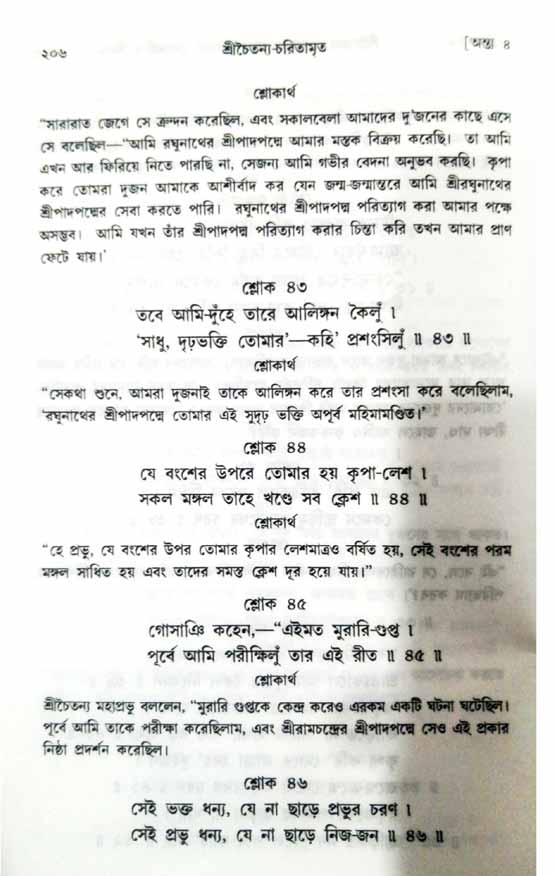 ২০৬
শ্রীচৈতন্য-চরিতামৃত
[অন্ত্য ৪
শ্লোকার্থ
“সারারাত জেগে সে ক্রন্দন করেছিল, এবং সকালবেলা আমাদের দু'জনের কাছে এসে
সে বলেছিল—“আমি রঘুনাথের শ্রীপাদপদ্মে আমার মস্তক বিক্রয় করেছি। তা আমি
এখন আর ফিরিয়ে নিতে পারছি না, সেজন্য আমি গভীর বেদনা অনুভব করছি। কৃপা
করে তোমরা দুজন আমাকে আশীর্বাদ কর যেন জন্ম-জন্মান্তরে আমি শ্রীরঘুনাথের
শ্রীপাদপদ্মের সেবা করতে পারি। রঘুনাথের শ্রীপাদপদ্ম পরিত্যাগ করা আমার পক্ষে
অসম্ভব। আমি যখন তাঁর শ্রীপাদপদ্ম পরিত্যাগ করার চিন্তা করি তখন আমার প্রাণ
ফেটে যায়।'
শ্লোক ৪৩
তবে আমি-দুঁহে তারে আলিঙ্গন কৈলুঁ ।
‘সাধু, দৃঢ়ভক্তি তোমার’—কহি’ প্রশংসিলুঁ ॥ ৪৩ ॥
শ্লোকার্থ
“সেকথা শুনে, আমরা দুজনাই তাকে আলিঙ্গন করে তার প্রশংসা করে বলেছিলাম,
‘রঘুনাথের শ্রীপাদপদ্মে তোমার এই সুদৃঢ় ভক্তি অপূর্ব মহিমামণ্ডিত।’
শ্লোক ৪৪
যে বংশের উপরে তোমার হয় কৃপা-লেশ ।
সকল মঙ্গল তাহে খণ্ডে সব ক্লেশ ॥ ৪৪ ॥
শ্লোকার্থ
“হে প্রভু, যে বংশের উপর তোমার কৃপার লেশমাত্রও বর্ষিত হয়, সেই বংশের পরম
মঙ্গল সাধিত হয় এবং তাদের সমস্ত ক্লেশ দূর হয়ে যায়।”
শ্লোক ৪৫
গোসাঞি কহেন,—“এইমত মুরারি-গুপ্ত ।
পূর্বে আমি পরীক্ষিলুঁ তার এই রীত ॥ ৪৫ ॥
শ্লোকার্থ
শ্রীচৈতন্য মহাপ্রভু বললেন, “মুরারি গুপ্তকে কেন্দ্র করেও এরকম একটি ঘটনা ঘটেছিল।
পূর্বে আমি তাকে পরীক্ষা করেছিলাম, এবং শ্রীরামচন্দ্রের শ্রীপাদপদ্মে সেও এই প্রকার
নিষ্ঠা প্রদর্শন করেছিল।
শ্লোক ৪৬
সেই ভক্ত ধন্য, যে না ছাড়ে প্রভুর চরণ ।
সেই প্রভু ধন্য, যে না ছাড়ে নিজ-জন ॥ ৪৬ ॥